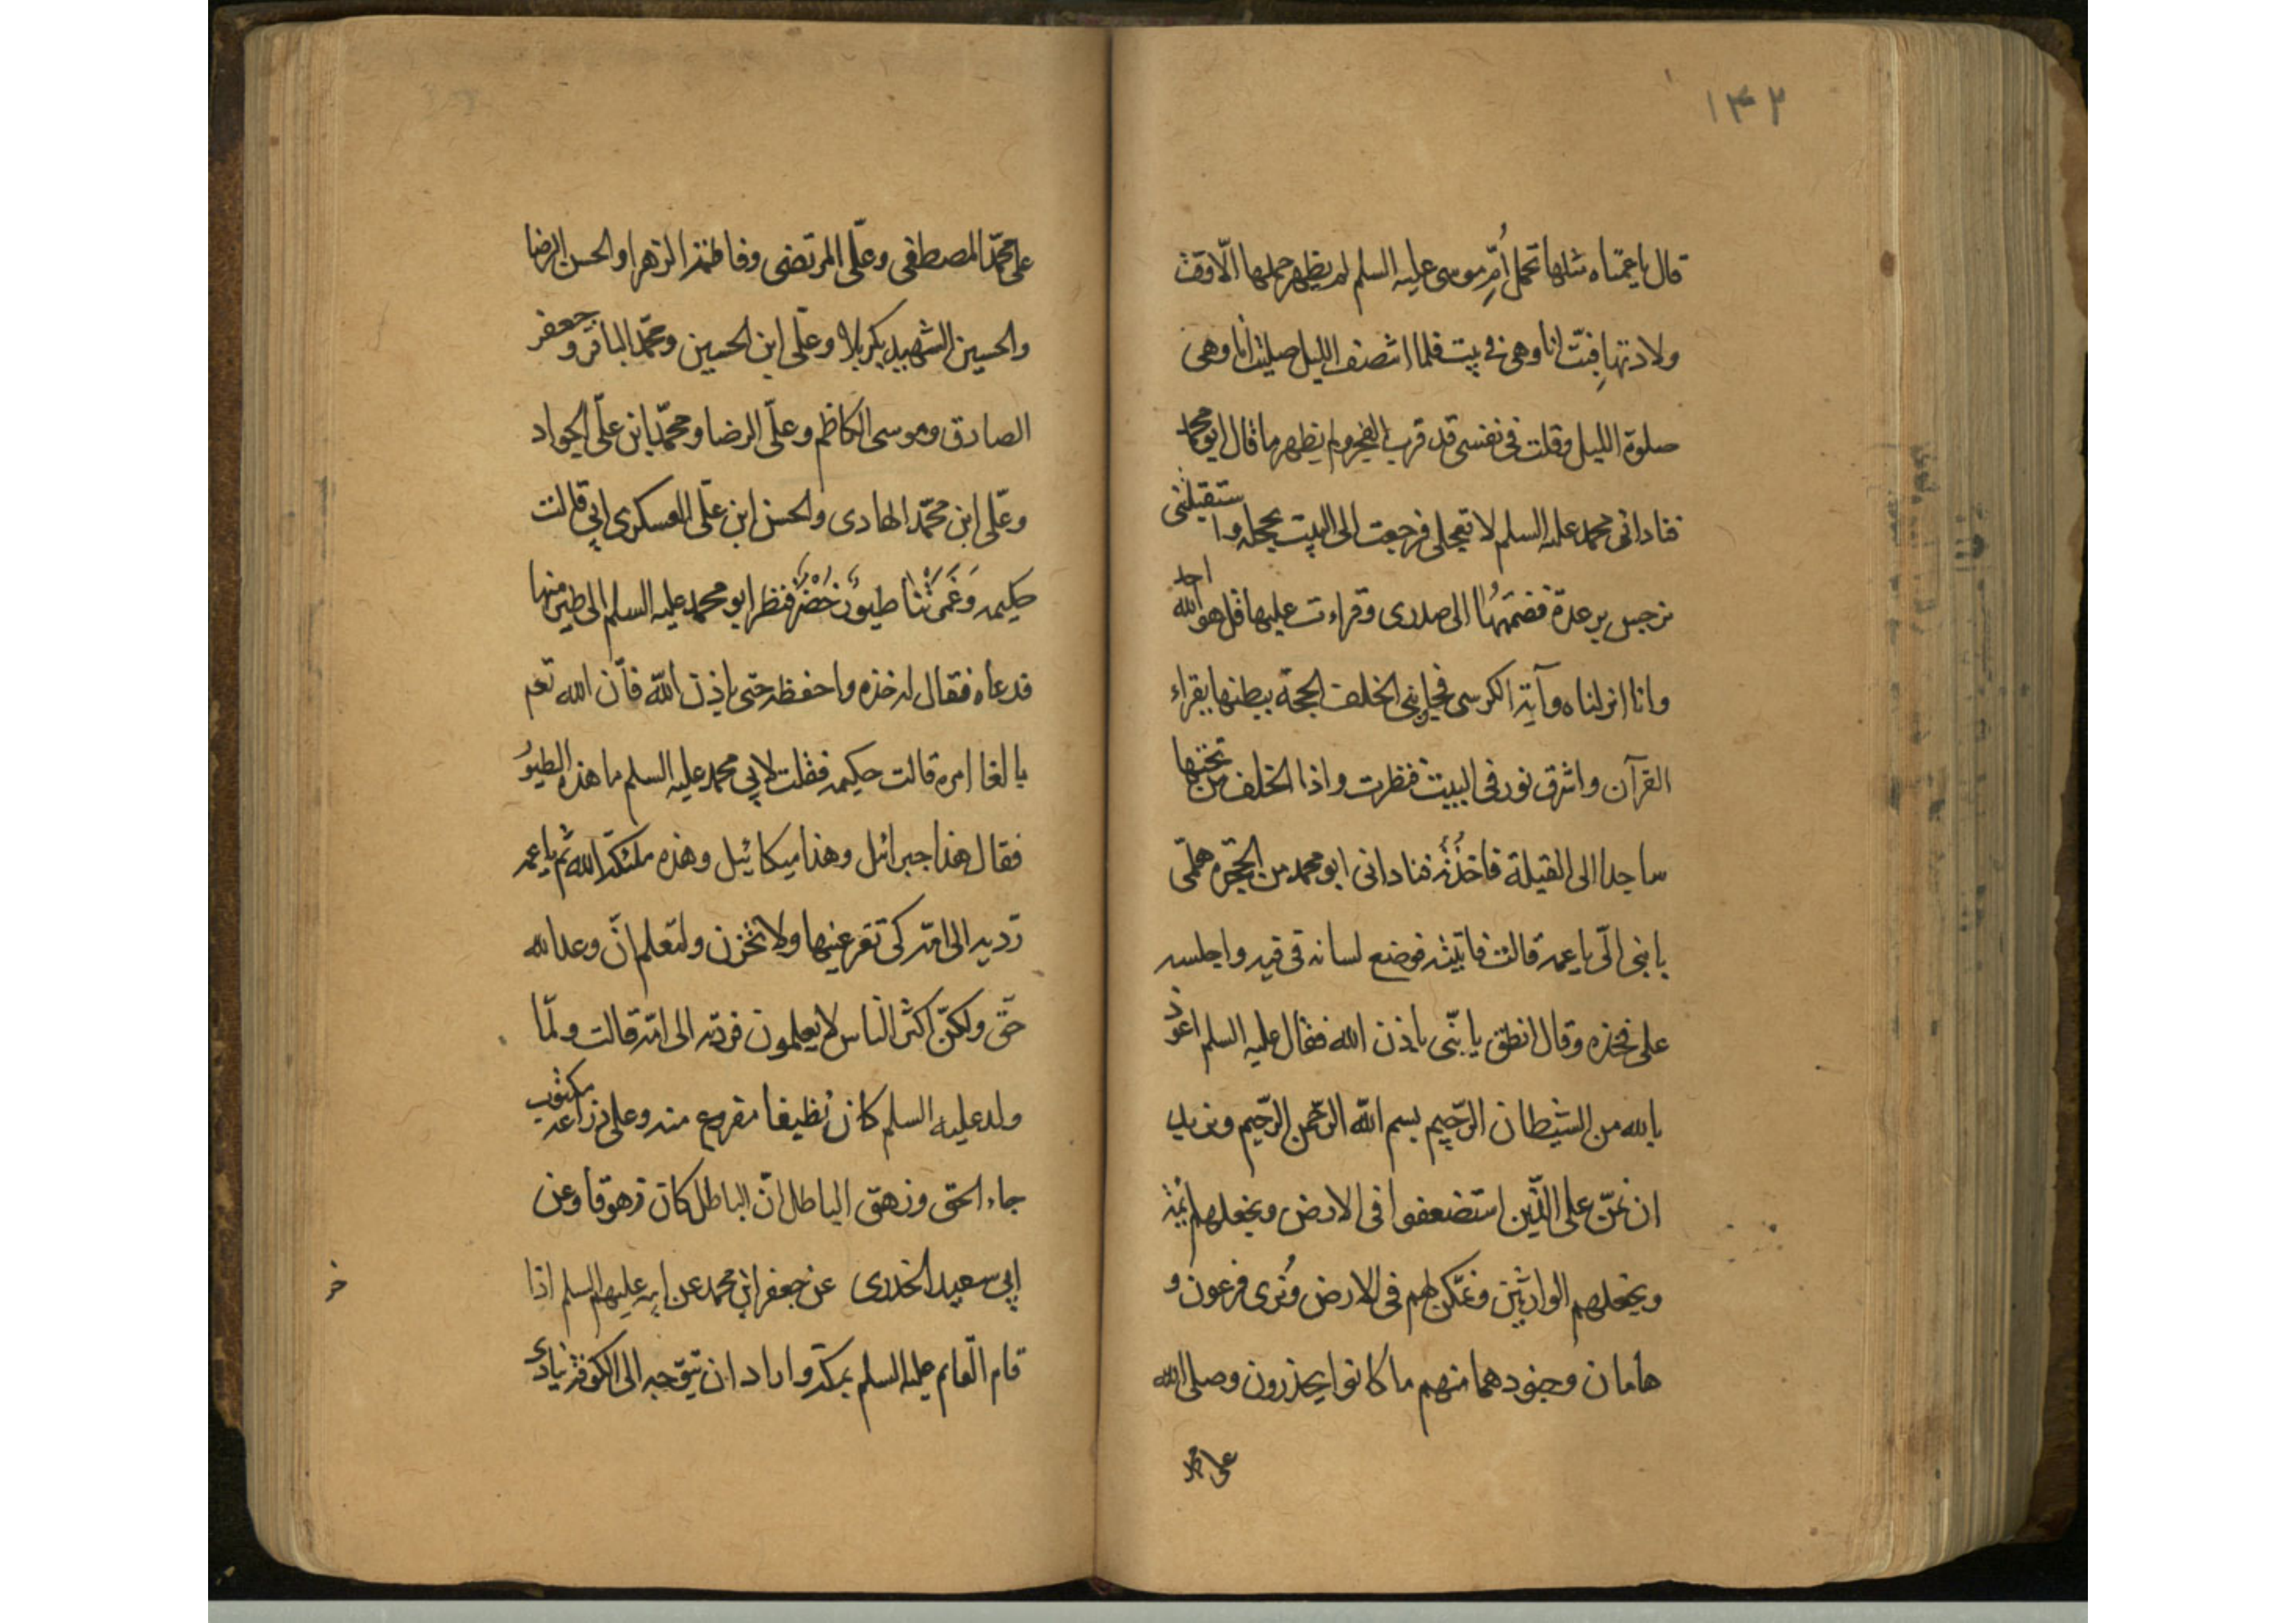 ۱۳۲
قال یا عمتاه مثلها تحمل اُمِّ موسی علیه السلم لم یظهر حملها الّا وقت
ولادتها فبتّ انا وهی فی بیت فلما انتصف اللیل صلیت انا وهی
صلوة اللیل وقلت فی نفسی قد قرب الفجر ولم یظهر ما قال ابو محمد
فنادانی محمد علیه السلم لا تعجلی فرجعت الی البیت بحجله واستقبلتنی
نرجس برعدة فضمتهُا الی صدری وقراءت علیها قل هو الله احد
وانا انزلناه وآیة الکرسی فجابنی الخلف الحجة ببطنها بقراء
القرآن واشرق نور فی البیت فنظرت واذا الخلف من تحتها
ساجدا الی القبلة فاخذُته فنادانی ابو محمد من الحجره هلمّی
یا بنی الّی یا عمه قالت فاتیته فوضع لسانه فی فیه واجلسه
علی فخذه وقال انطق یا بنّی باذن الله فقال علیه السلم اعوذ
بالله من الشیطان الرّجیم بسم الله الرّحمن الرّحیم ونرید
ان نمّن علی الّذین استضعفوا فی الارض ونجعلهم ائمة
ونجعلهم الوارثین ونمّکن لهم فی الارض ونُری فرعون و
هامان وجنودهما منهم ما کانوا یحذرون وصلی الله
علی محمد
علی محمّد المصطفی وعلّی المرتضی وفاطمة الزهرا والحسن الرضا
والحسین الشهید بکربلا وعلّی ابن الحسین ومحمّد الباقر وجعفر
الصادق وموسی الکاظم وعلّی الرضا ومحمّد ابن علّی الجواد
وعلّی ابن محمّد الهادی والحسن ابن علّی العسکری ابی قالت
حکیمه وَغَمَرَتْنا طیوٌر خُضْرٌ فنظر ابو محمد علیه السلم الی طیر منها
فدعاه فقال له خذه واحفظه حتی یاذن الله فأن الله تعم
بالغا امره قالت حکیمه فقلت لابی محمد علیه السلم ما هذه الطیوُر
فقال هذا جبرائل وهذا میکائیل وهذه ملئکة الله ثم یا عمه
ردّیه الی امّه کی تقر عینها ولا تحزن ولتعلم انّ وعد الله
حّق ولکنّ اکثر النّاس لا یعلمون فردته الی امّه قالت ولمّا
ولد علیه السلم کان نظیفا مفروع منه وعلی ذراعه مکتوب
جاء الحق وزهق الباطل انّ الباطل کان زهوقا وعن
ابی سعید الخدری عن جعفر ابن محمد عن ابیه علیهم السلم اذا
قام القایم علیه السلم بمکّة واراد ان یتوّجه الی الکوفة نادی